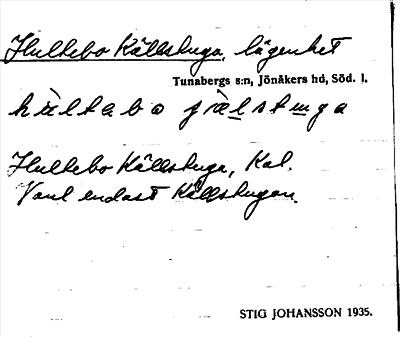 Hultebo Källstuga, lägenhet
Tunabergs s:n, Jönåkers hd, Söd. l.
hùltabo ɟälstuga
Hultebo Källstuga, Kal.
Vanl endast Källstugan.
STIG JOHANSSON 1935.